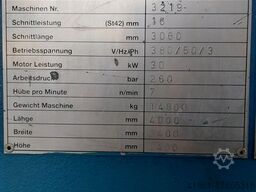 Maschinen Nr. 3219-
Schnittleistung (St42) mm 16
Schnittlänge mm 3080
Betriebsspannung V/Hz/Ph 380/50/3
Motor Leistung kW 30
Arbeitsdruck bar 260
Hübe pro Minute n/min 7
Gewicht Maschine kg 14800
Lähge mm 4000
Breite mm 2400
Höhe mm